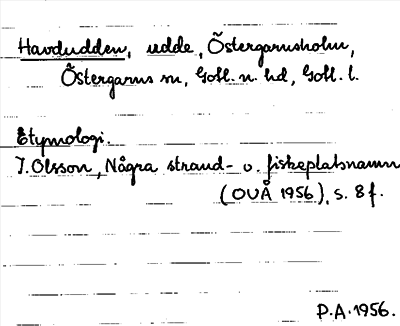 Havdudden, udde, Östergarnsholm,
Östergarns sn, Gotl. n. hd, Gotl. l.
Etymologi.
I. Olsson, Några strand- o. fiskeplatsnamn
(OUÅ 1956), s. 8 f.
P.A. 1956.